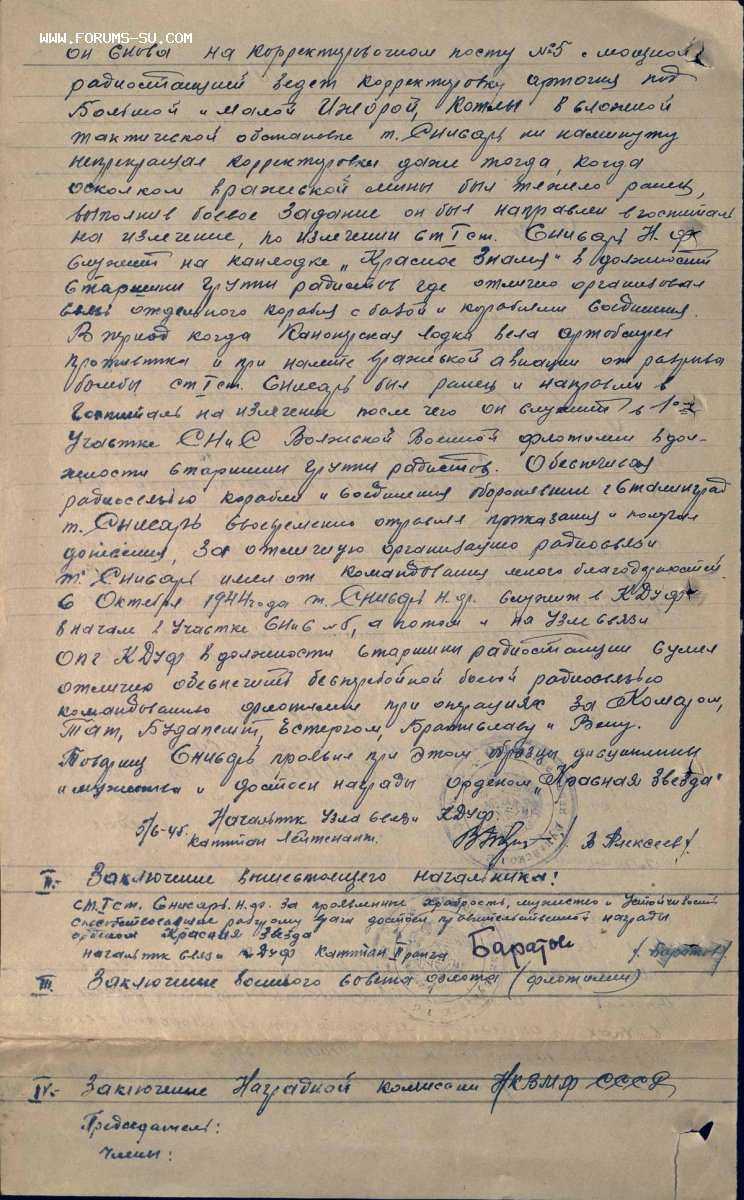 www.forums-su.com
он снова на корректировочном посту №5 с мощной
радиостанцией ведет корректировку артогня под
Большой и Малой Ижорой, Котлы в сложной
тактической обстановке т. Снисарь ни на минуту
непрекращая корректировки даже тогда, когда
осколком вражеской мины был тяжело ранен,
выполнив боевое задание он был направлен в госпиталь
на излечение, по излечении ст. I ст. Снисарь Н. Ф.
служит на канлодке "Красное Знамя" в должности
старшины группы радистов где отлично организовал
связь отдельного корабля с базой и кораблями соединения.
В период когда Канонерская лодка вела артобстрел
противника и при налете вражеской авиации от разрыва
бомбы ст. I ст. Снисарь был ранен и направлен в
госпиталь на излечение после чего он служит в 1ом
Участке СНиС Волжской Военной флотилии в дол-
жности старшины группы радистов. Обеспечивая
радиосвязью корабли и соединения оборонявшие г. Сталинград
т. Снисарь своевременно отправлял приказания и получал
донесения, за отличную организацию радиосвязи
т. Снисарь имел от командования много благодарностей.
С Октября 1944 года т. Снисарь Н.Ф. служит в КДуФ
в начале в Участке СНиС, а потом и на Узле связи
КДуФ в должности старшины радиостанции сумел
отлично обеспечить бесперебойной боевой радиосвязью
командование флотилии при операциях за Комаром,
Тат, Будапешт, Эстергом, Братиславу и Вену.
Товарищ Снисарь проявил при этом образцы дисциплины
и мужества и достоин награды орденом "Красная Звезда"
Начальник Узла связи КДуФ
5/6-45. капитан лейтенант: В Алексеев/.
II.- Заключение вышестоящего начальника:
ст. I ст. Снисарь Н.Ф. за проявленные храбрость, мужество и устойчивость
способствовавшие разгрому врага достоин правительственной награды
орденом Красная Звезда
начальник связи КДуФ капитан II ранга Баратов /Баратов/
III. Заключение военного совета флота (флотилии)
IV.- Заключение Наградной комиссии НКВМФ СССР
Председатель:
Члены: